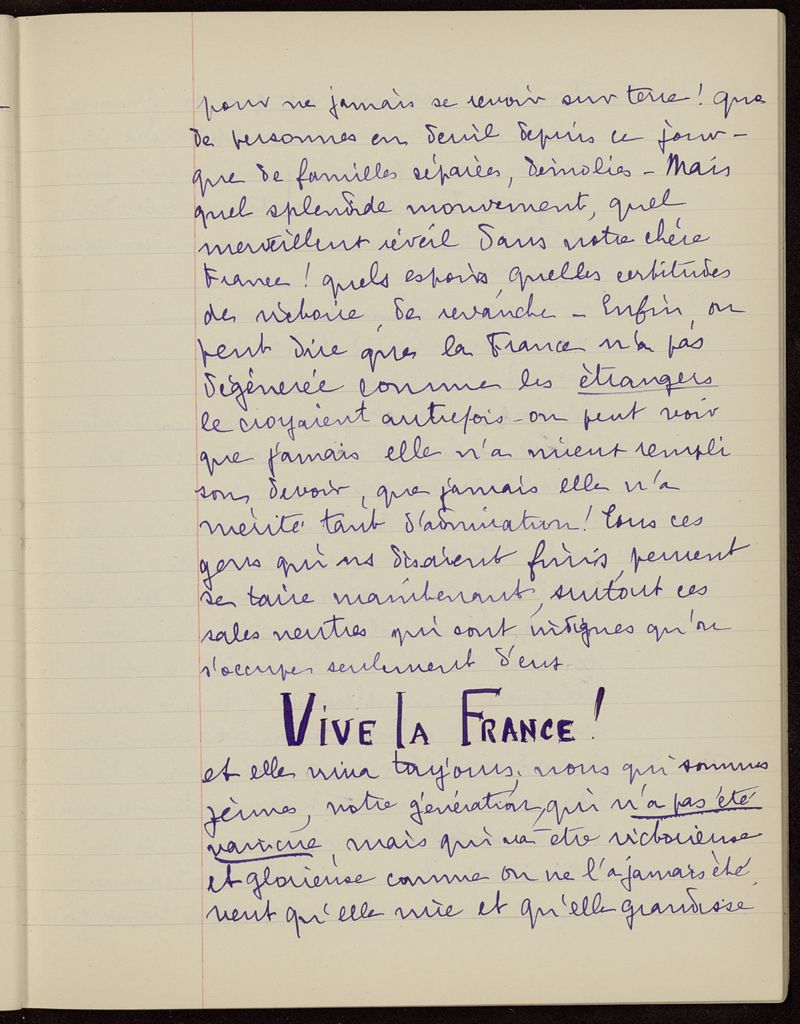 pour ne jamais se revoir sur terre ! que
de personnes en deuil depuis ce jour -
que de familles séparées, démolies - Mais
quel splendide mouvement, quel
merveilleux réveil dans notre chère
France ! quels espoirs, quelles certitudes
de victoire, de revanche - Enfin, on
peut dire que la France n'a pas
dégénerée comme les étrangers
le croyaient autrefois - on peut voir
que jamais elle n'a mieux rempli
son devoir, que jamais elle n'a
mérité tant d'admiration ! Tous ces
gens qui ns disaient finis, peuvent
se taire maintenant, surtout ces
sales neutres qui sont indignes qu'on
s'occupe seulement d'eux.
VIVE LA FRANCE !
et elle vivra toujours, nous qui sommes
jeunes, notre génération, qui n'a pas été
vaincue, mais qui va être victorieuse
et glorieuse comme on ne l'a jamais été
veut qu'elle vive et qu'elle grandisse